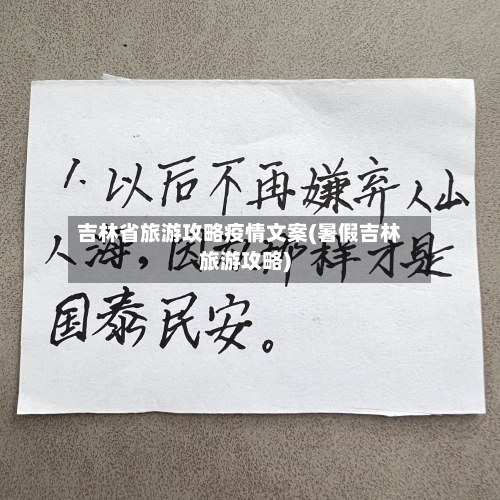 1. 以后不再嫌弃人山
人海，因为那样才是
国泰民安。
吉林省旅游攻略疫情文案(暑假吉林
旅游攻略)